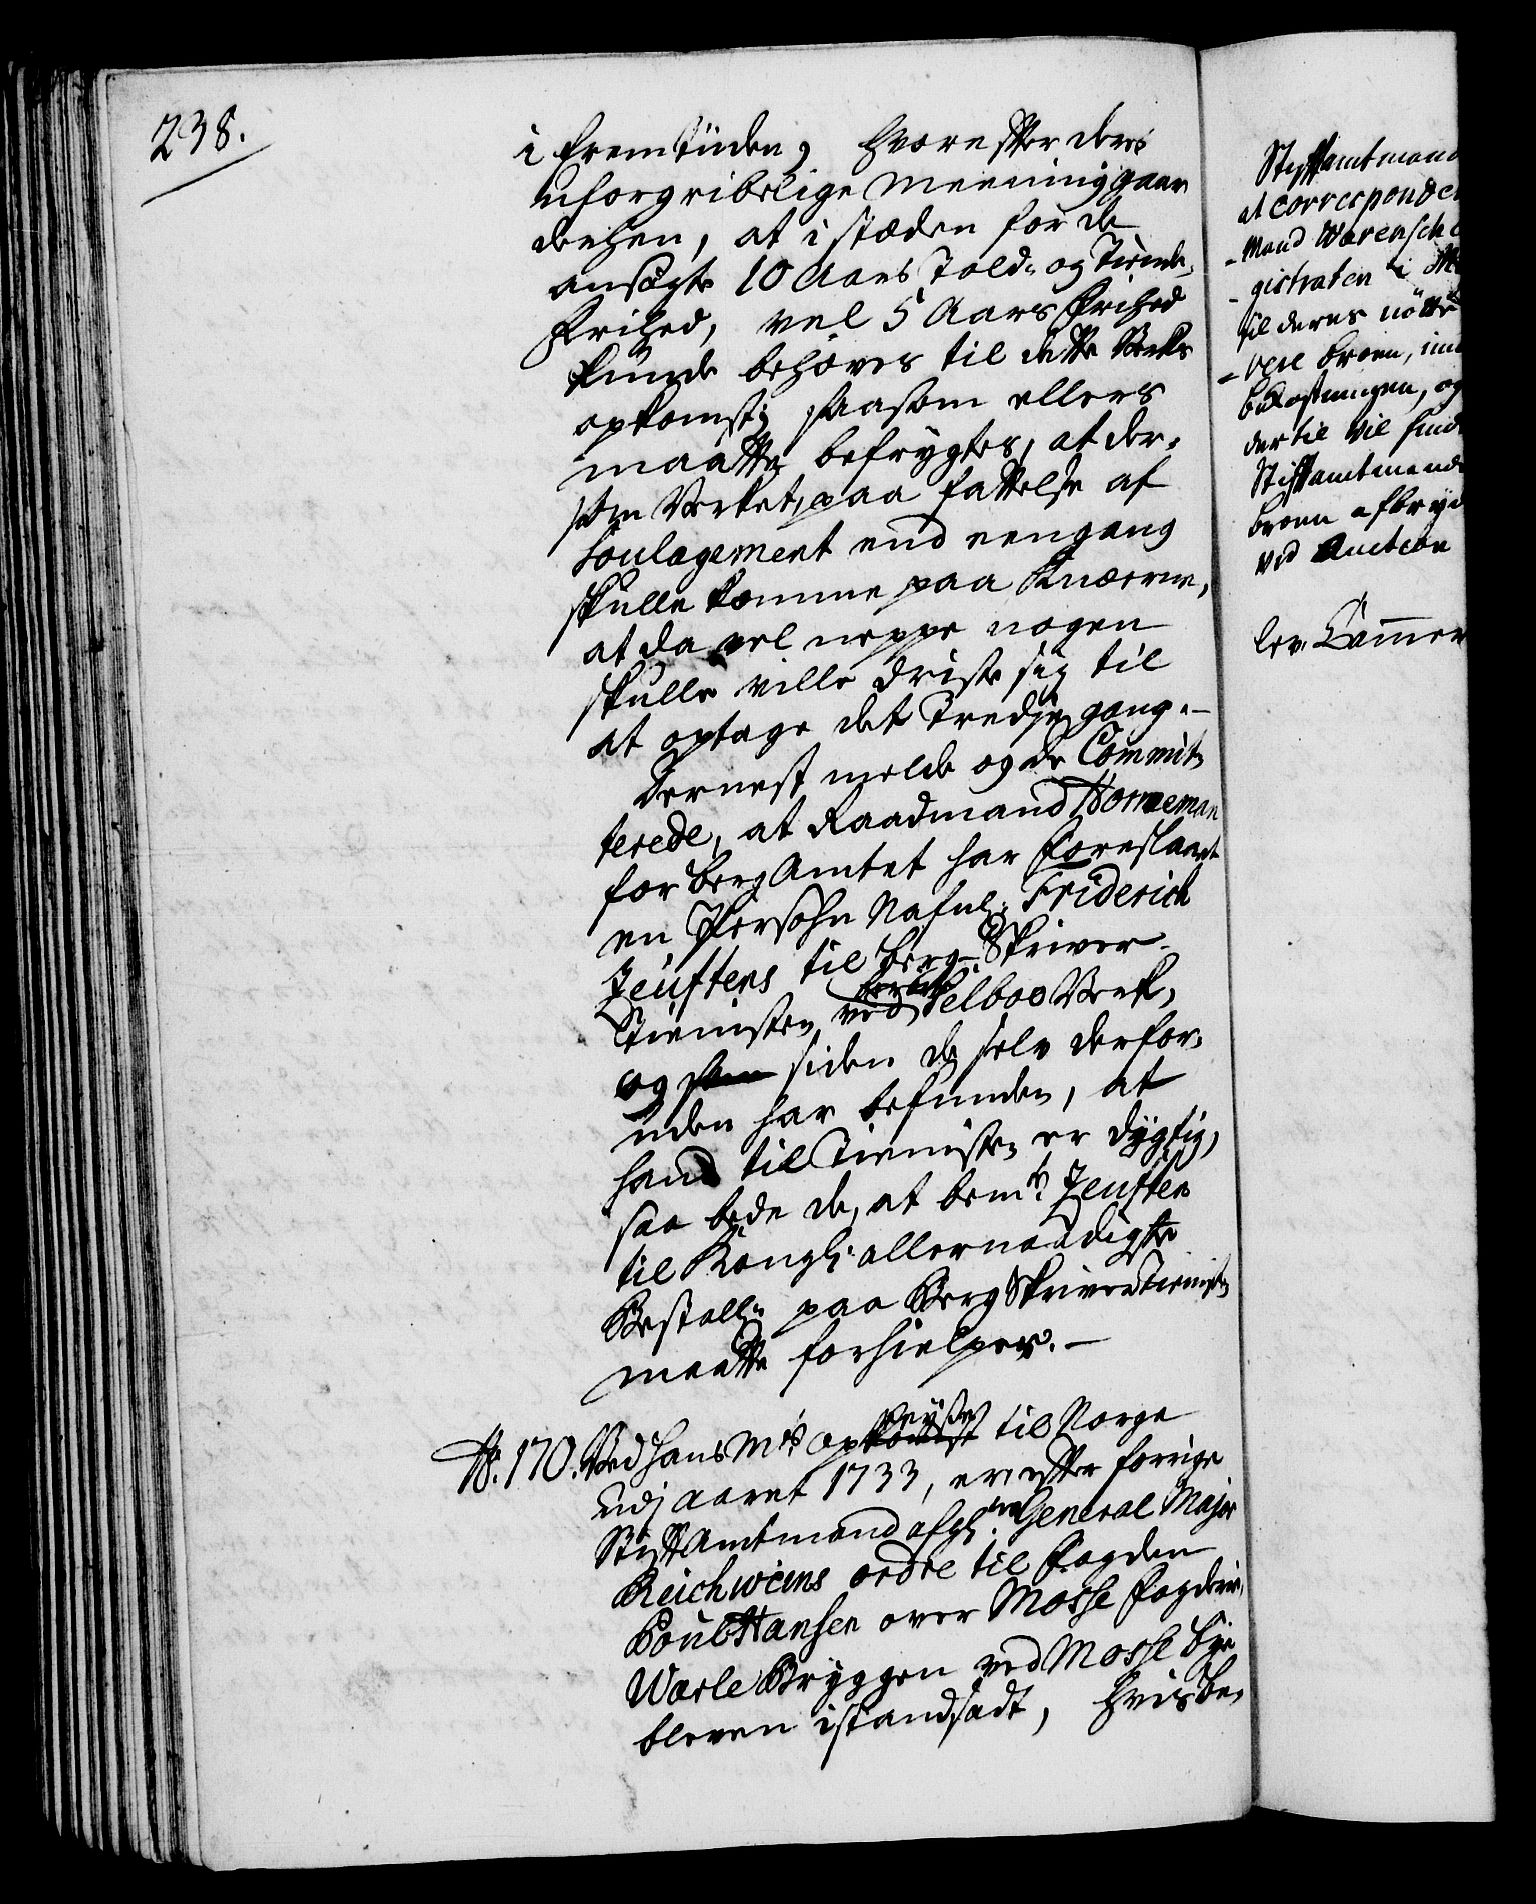 238.
i fremtiiden, hvorefter deres
uforgribelige meening gaar
derhen, at i stæden for de
ansøgte 10 Aars Told- og Tiende-
Frihed, vel 5 Aars Frihed
kunde behøves til dette Verks
opkomst; saasom ellers
maatte befrygtes, at der-
som Verket, paa fattelse af
soulagement end eengang
skulle komme paa Knæerne,
at da vel neppe nogen
skulle ville driste sig til
at optage det Tredje gang.-
Dernest melde og de Commit-
terede, at Raadmand Hornemann
for berg Amtet har foreslaaet
en Persohn Nafnl: Friderich
Jeuftens til berg-Skriver-
Tienisten ved Selboe Verk,
og som siden de selv derfor-
uden har befunden, at
hand til Tienisten er dygtig,
saa bede de, at bemte Jeuften
til Kongl: allernaadigste
Bestall: paa Berg Skriver Tienisten
maatte forhielpes.-
No. 170. Ved Hans Mts opreyse til Norge
udj aaret 1733, er efter forrige
Stiftamtmand afgl: Hr General Major
Reichweins ordre til Fogden
Poul Hansen over Mosse Fogderie,
Warle Bryggen ved Mosse bye
bleven istandsadt, hvis be-
Stiftamtmand
at corresponde
-mand Warensch
-gistraten i M
til deres
-vere broen,
bekostningen, og
dertil vil find
Stiftamtmand
broen afbry
ved
lev. Cammer